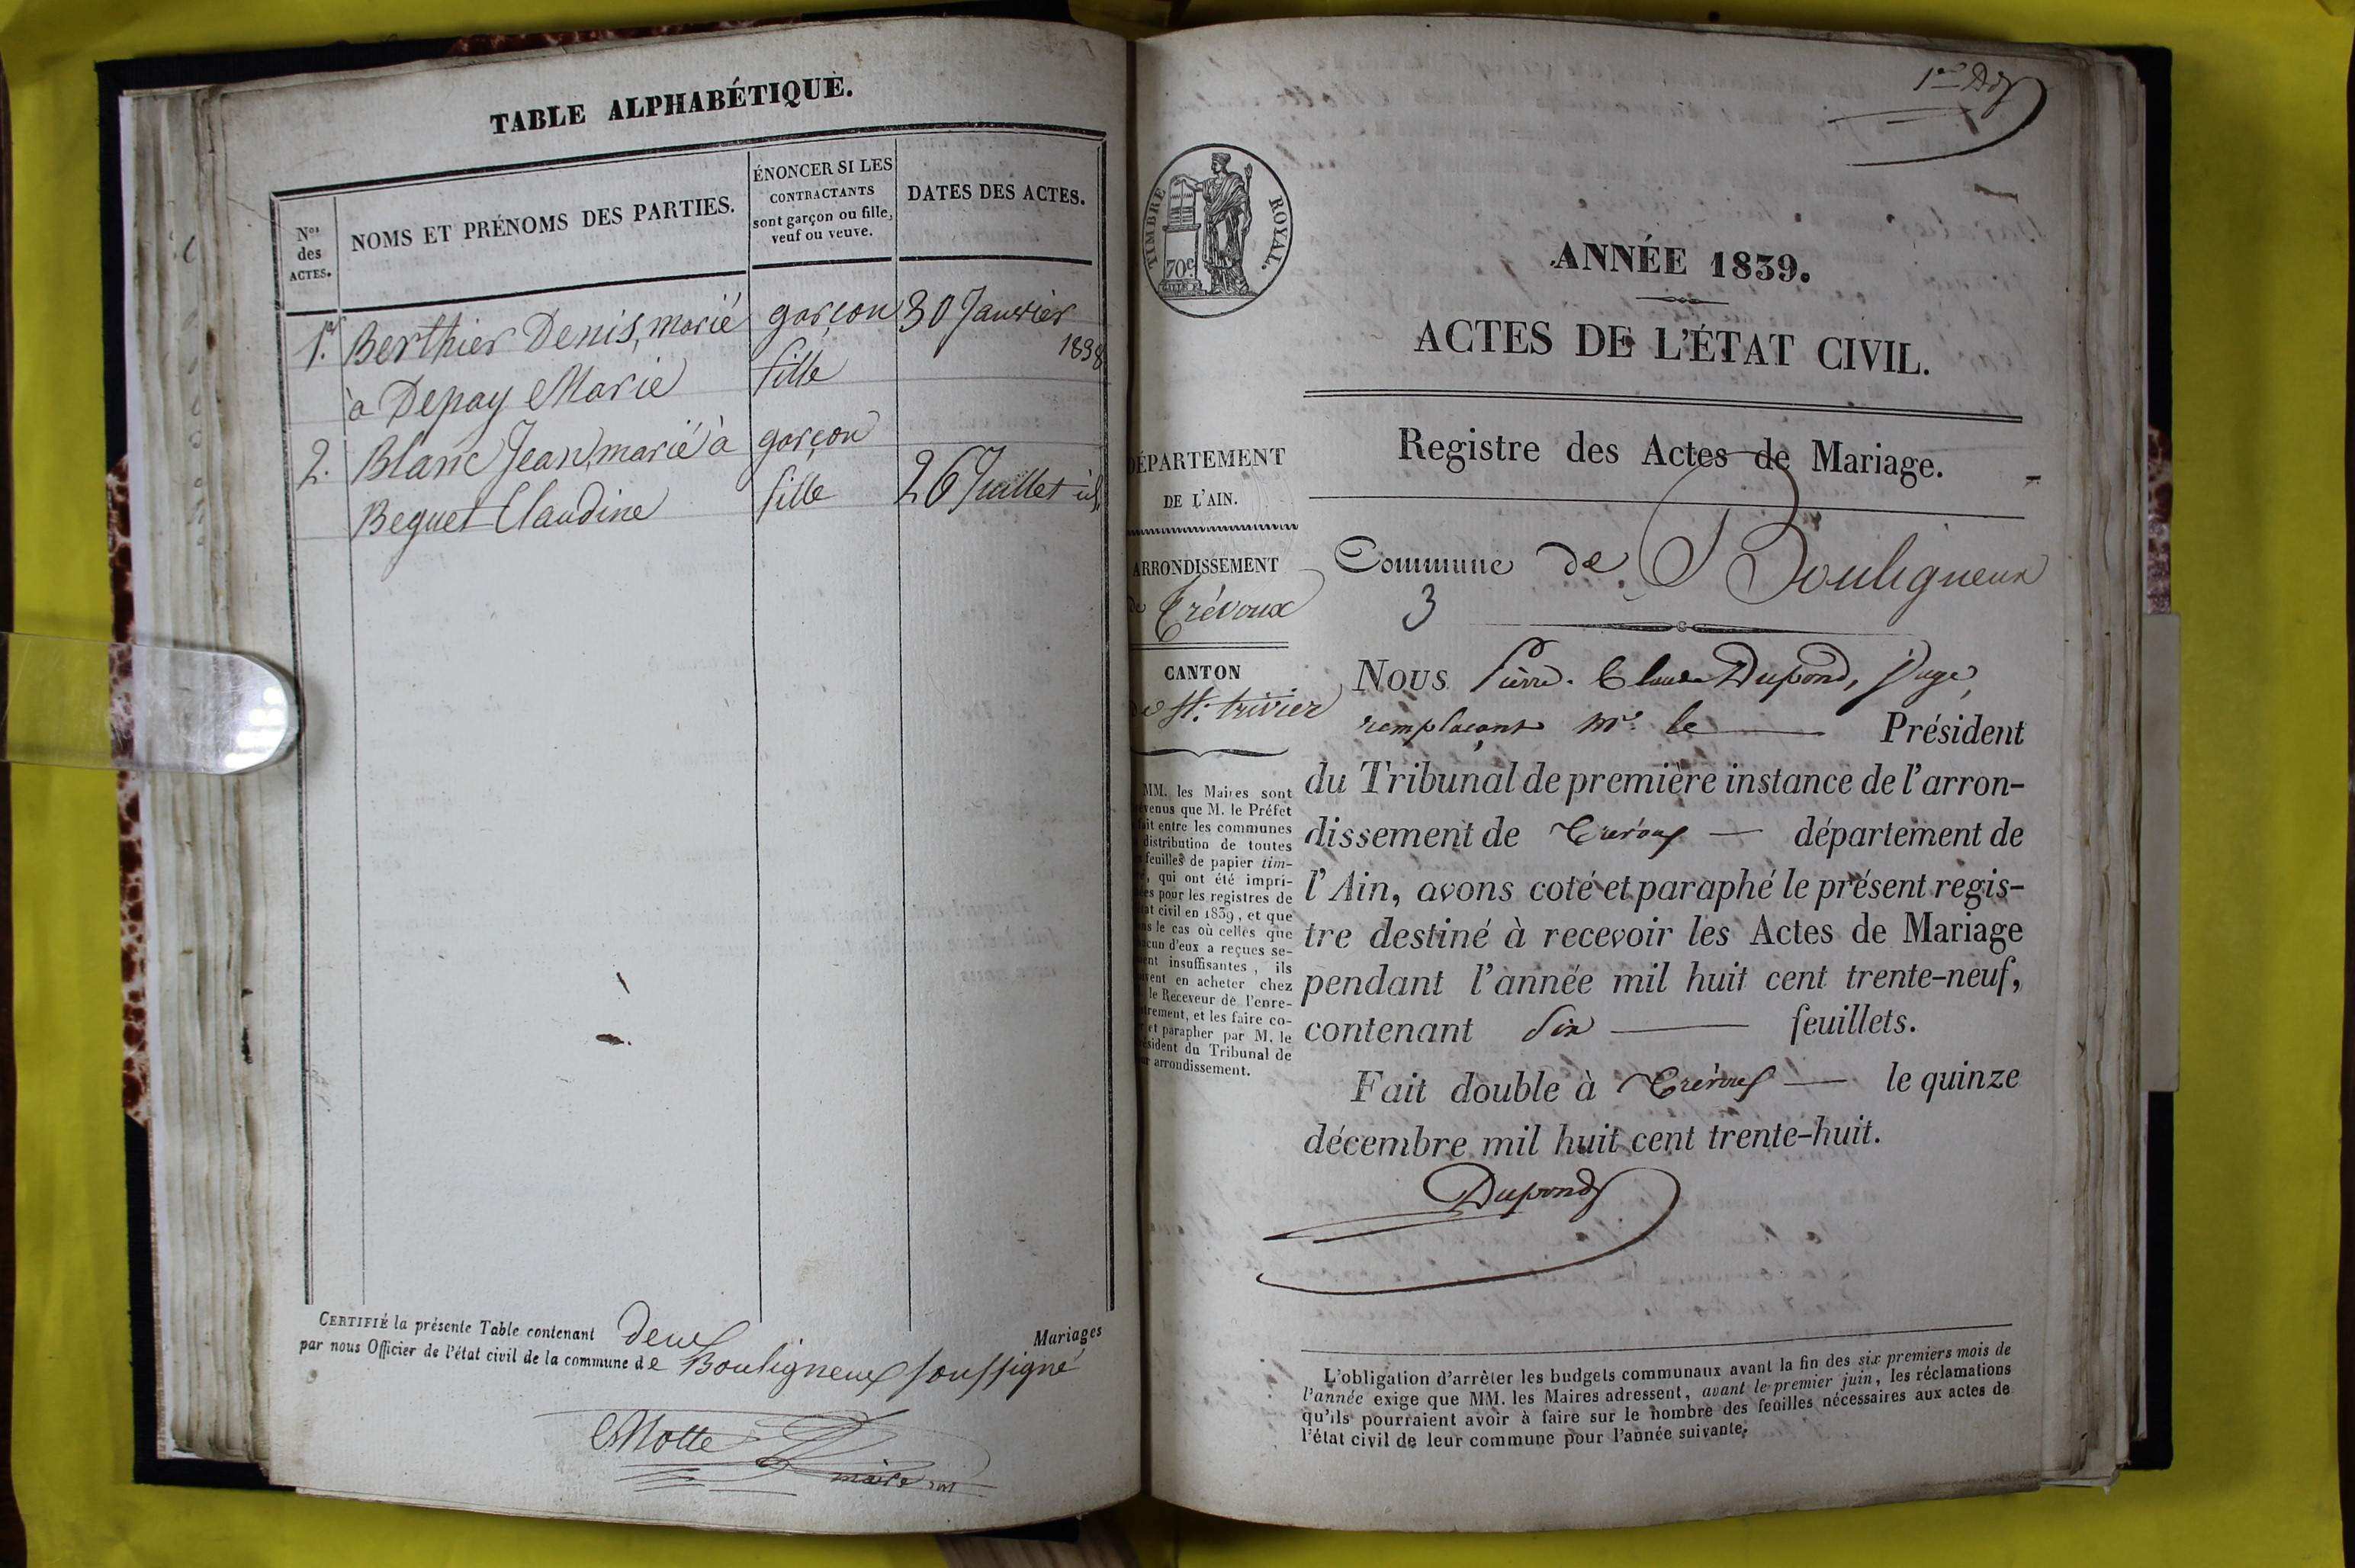 TABLE ALPHABÉTIQUE.
Nos des ACTES.
NOMS ET PRÉNOMS DES PARTIES.
ÉNONCER SI LES
CONTRACTANTS
sont garçon ou fille,
veuf ou veuve.
DATES DES ACTES.
1. Berthier Denis, marié garçon 30 Janvier
1838
à Depay Marie fille
2. Blanc Jean, marié à garçon
Beguet Claudine fille 26 Juillet id.
CERTIFIÉ la présente Table contenant deux Mariages,
par nous Officier de l'état civil de la commune de Bouligneux soussigné
Motte
maire
TIMBRE ROYAL.
70c
DÉPARTEMENT
DE L'AIN.
ARRONDISSEMENT
de Trévoux
CANTON
de St. trivier
MM. les Maires sont
venus que M. le Préfet
fait entre les communes
distribution de toutes
feuilles de papier tim-
, qui ont été impri-
es pour les registres de
at civil en 1839, et que
s le cas où celles que
acun d'eux a reçues se-
ent insuffisantes, ils
vent en acheter chez
le Receveur de l'enre-
trement, et les faire co-
et parapher par M. le
ésident du Tribunal de
arrondissement.
ANNÉE 1839.
ACTES DE L'ÉTAT CIVIL.
Registre des Actes de Mariage.
Commune de Bouligneux
3
Nous Pierre Claude Dupond, Juge,
remplaçant Mr. le Président
du Tribunal de première instance de l'arron-
dissement de Trévoux département de
l'Ain, avons coté et paraphé le présent regis-
tre destiné à recevoir les Actes de Mariage
pendant l'année mil huit cent trente-neuf,
contenant Six feuillets.
Fait double à Trévoux le quinze
décembre mil huit cent trente-huit.
Dupond
L'obligation d'arrêter les budgets communaux avant la fin des six premiers mois de
l'année exige que MM. les Maires adressent, avant le premier juin, les réclamations
qu'ils pourraient avoir à faire sur le nombre des feuilles nécessaires aux actes de
l'état civil de leur commune pour l'année suivante.